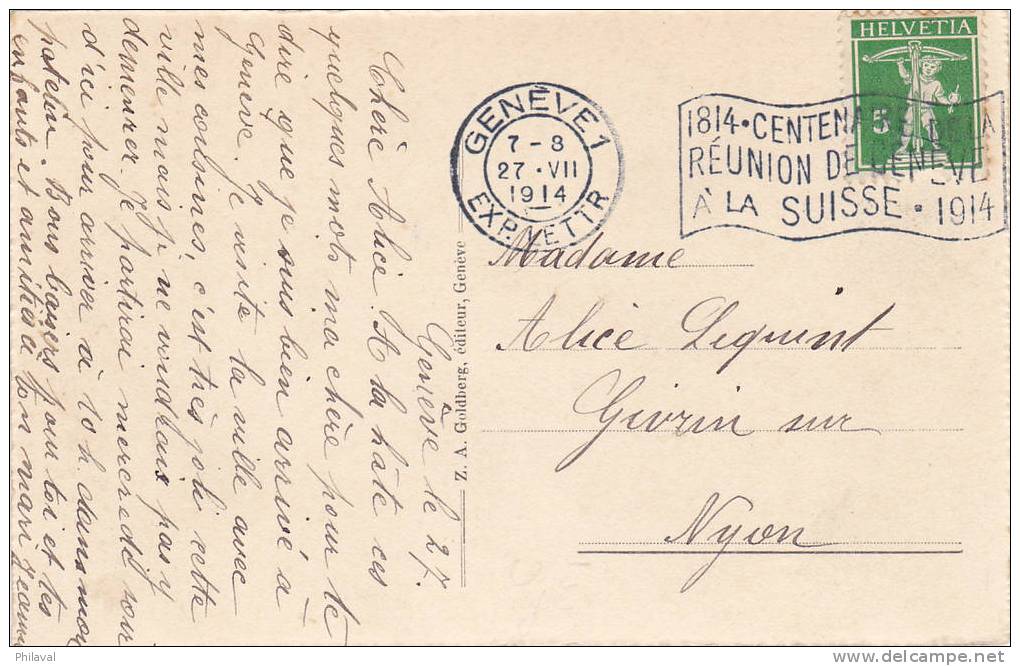 Genève le 27.
Chère Alice. A la hâte ces
quelques mots ma chère pour te
dire que je suis bien arrivé à
Genève. Je visite la ville avec
mes cousines, c'est très joli cette
ville mais je ne voudrais pas y
demeurer. Je partirai mercredi soir
d'ici pour arriver à 10 h. dans mon
patelin. Bons baisers pour toi et les
enfants et amitiés à ton mari
Z. A. Goldberg, éditeur, Genève
GENÈVE 1
7-8
27·VII
1914
EXP. LETTR
1814·CENTENAIRE DE LA
RÉUNION DE GENÈVE
À LA SUISSE·1914
HELVETIA
5
Madame
Alice Lequint
Givrin sur
Nyon
Philaval
delcampe.net